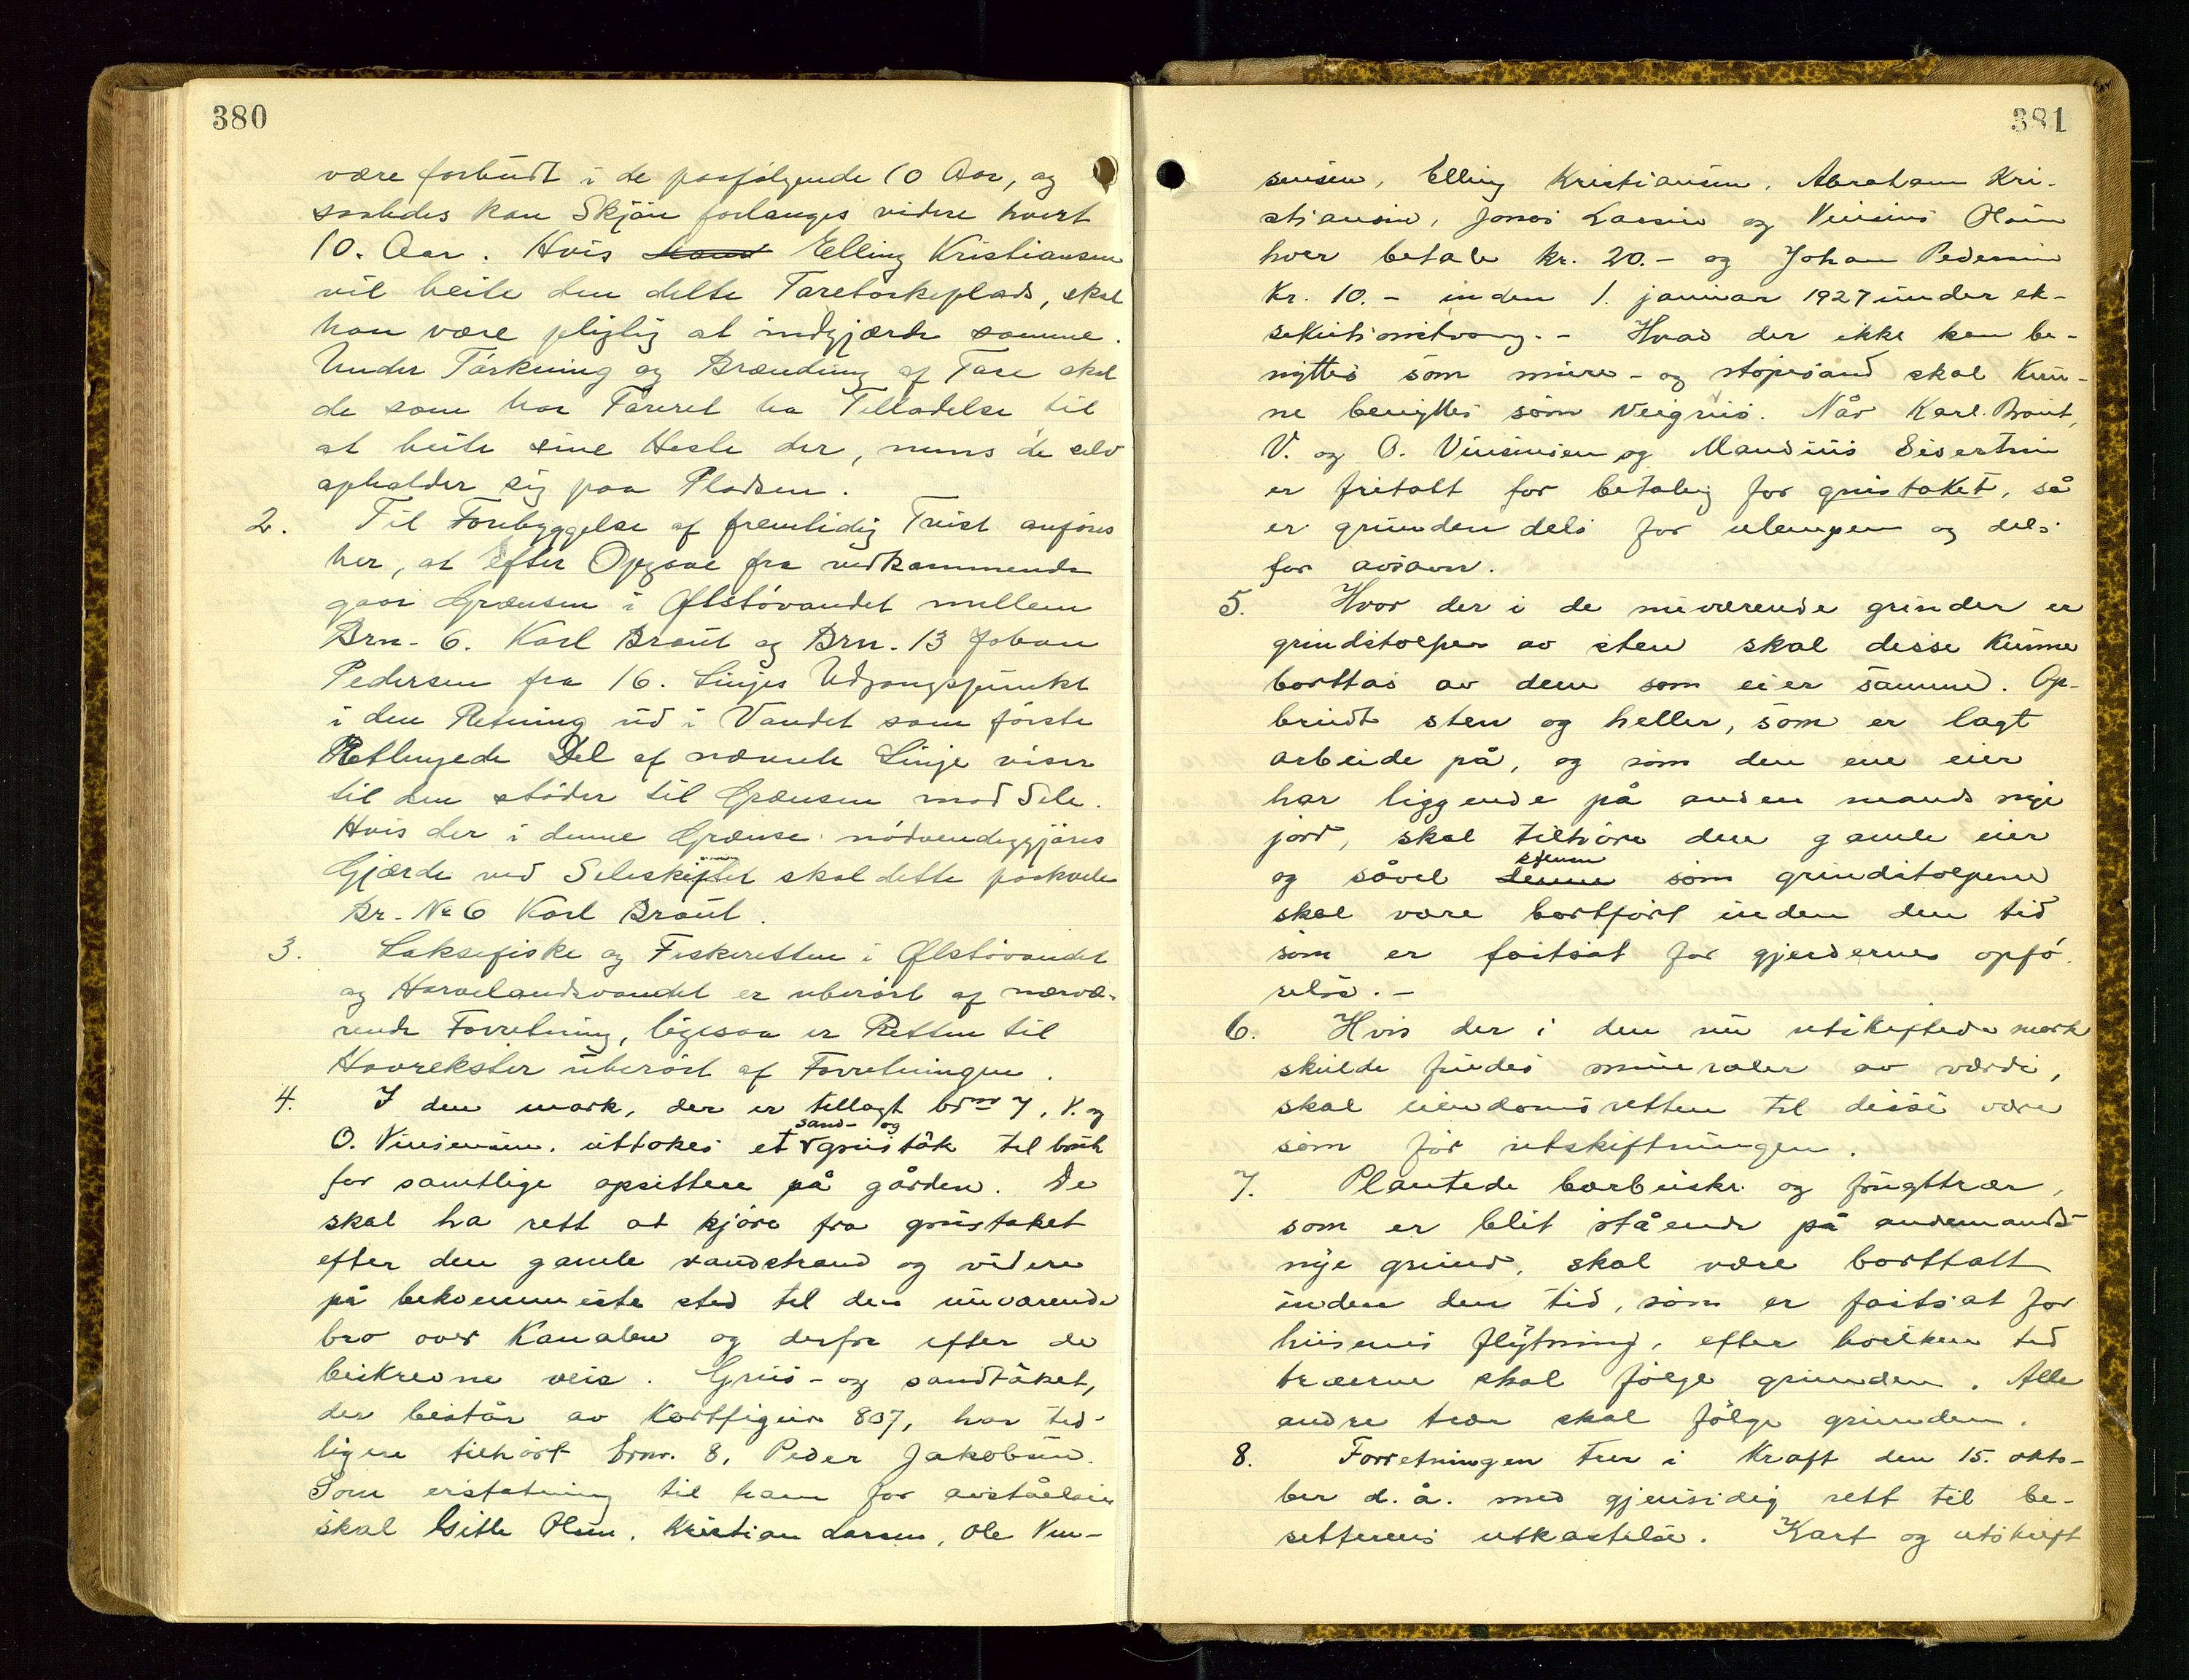 380
være forbudt i de paafølgende 10 Aar, og
saaledes kan Skjøn forlanges videre hvert
10. Aar. Hvis Elling Kristiansen
vil beite den delte Taretørkeplads, skal
han være pligtig at indgjærde samme.
Under Tørkning og Brænding af Tare skal
de som har Tareret ha Tilladelse til
at beite sine Heste der, mens de selv
opholder sig paa Pladsen.
2. Til Forebyggelse af fremtidig Tvist anføres
her, at efter Opgave fra vedkommende
gaar Grænsen i Ølstøvandet mellem
Brn. 6. Karl Braut og Brn. 13 Johan
Pedersen fra 16. Linjes Udgangspunkt
i den Retning ud i Vandet som første
Retlinjede Del af nævnte Linje viser
til den støder til Grænsen mod Sele.
Hvis der i denne Grænse nødvendiggjøres
Gjærde ved Seleskiftet skal dette paahvile
Br. No 6 Karl Braut.
3. Laksefiske og Fiskeretten i Ølstøvandet
og Horvelandsvandet er uberørt af nærvæ-
rende Forretning, ligesaa er Retten til
Havrekster uberørt af Forretningen.
4. I den mark, der er tillagt brnr 7, V. og
O. Vinsensen, uttakes et sand- og grustak til bruk
for samtlige opsittere på gården. De
skal ha rett at kjøre fra grustaket
efter den gamle vandstrand og videre
på bekvemmeste sted til den nuværende
bro over Kanalen og derfra efter de
beskrevne veie. Grus- og sandtaket,
der består av Kartfigur 837, har tid-
ligere tilhørt brnr. 8, Peder Jakobsen.
Som erstatning til ham for avståelsen
skal Gitle Olsen, Kristian Larsen, Ole Vin-
381
sensen, Elling Kristiansen, Abraham Kri-
stiansen, Jonas Larsen og Vinsens Olsen
hver betale kr. 20.- og Johan Pedersen
Kr. 10.- inden 1. januar 1927 under ek-
sekutionstvang.- Hvad der ikke kan be-
nyttes som mure- og støpesand skal kun-
ne benyttes som veigrus. Når Karl Braut,
V. og O. Vinsensen og Mandius Sivertsen
er fritatt for betaling for grustaket, så
er grunden dels for ulempen og dels
for avsavn.
5. Hvor der i de nuværende grinder er
grindstolper av sten skal disse kunne
borttas av dem som eier samme. Op-
brudt sten og heller, som er lagt
arbeide på, og som den ene eier
har liggende på anden mands nye
jord, skal tilhøre den gamle eier
og såvel stenen som grindstolpene
skal være bortført inden den tid
som er fastsat for gjerdernes opfø-
relse.-
6. Hvis der i den nu utskiftede mark
skulde findes mineraler av værdi,
skal eiendomsretten til disse være
som før utskiftningen.
7. Plantede bærbuske og frugttrær,
som er blit stående på andenmands
nye grund, skal være borttatt
inden den tid, som er fastsat for
husenes flytning, efter hvilken tid
trærne skal følge grunden. Alle
andre trær skal følge grunden.
8. Forretningen trer i Kraft den 15. okto-
ber d. å. med gjensidig rett til be-
sitterens utkastelse. Kart og utskift